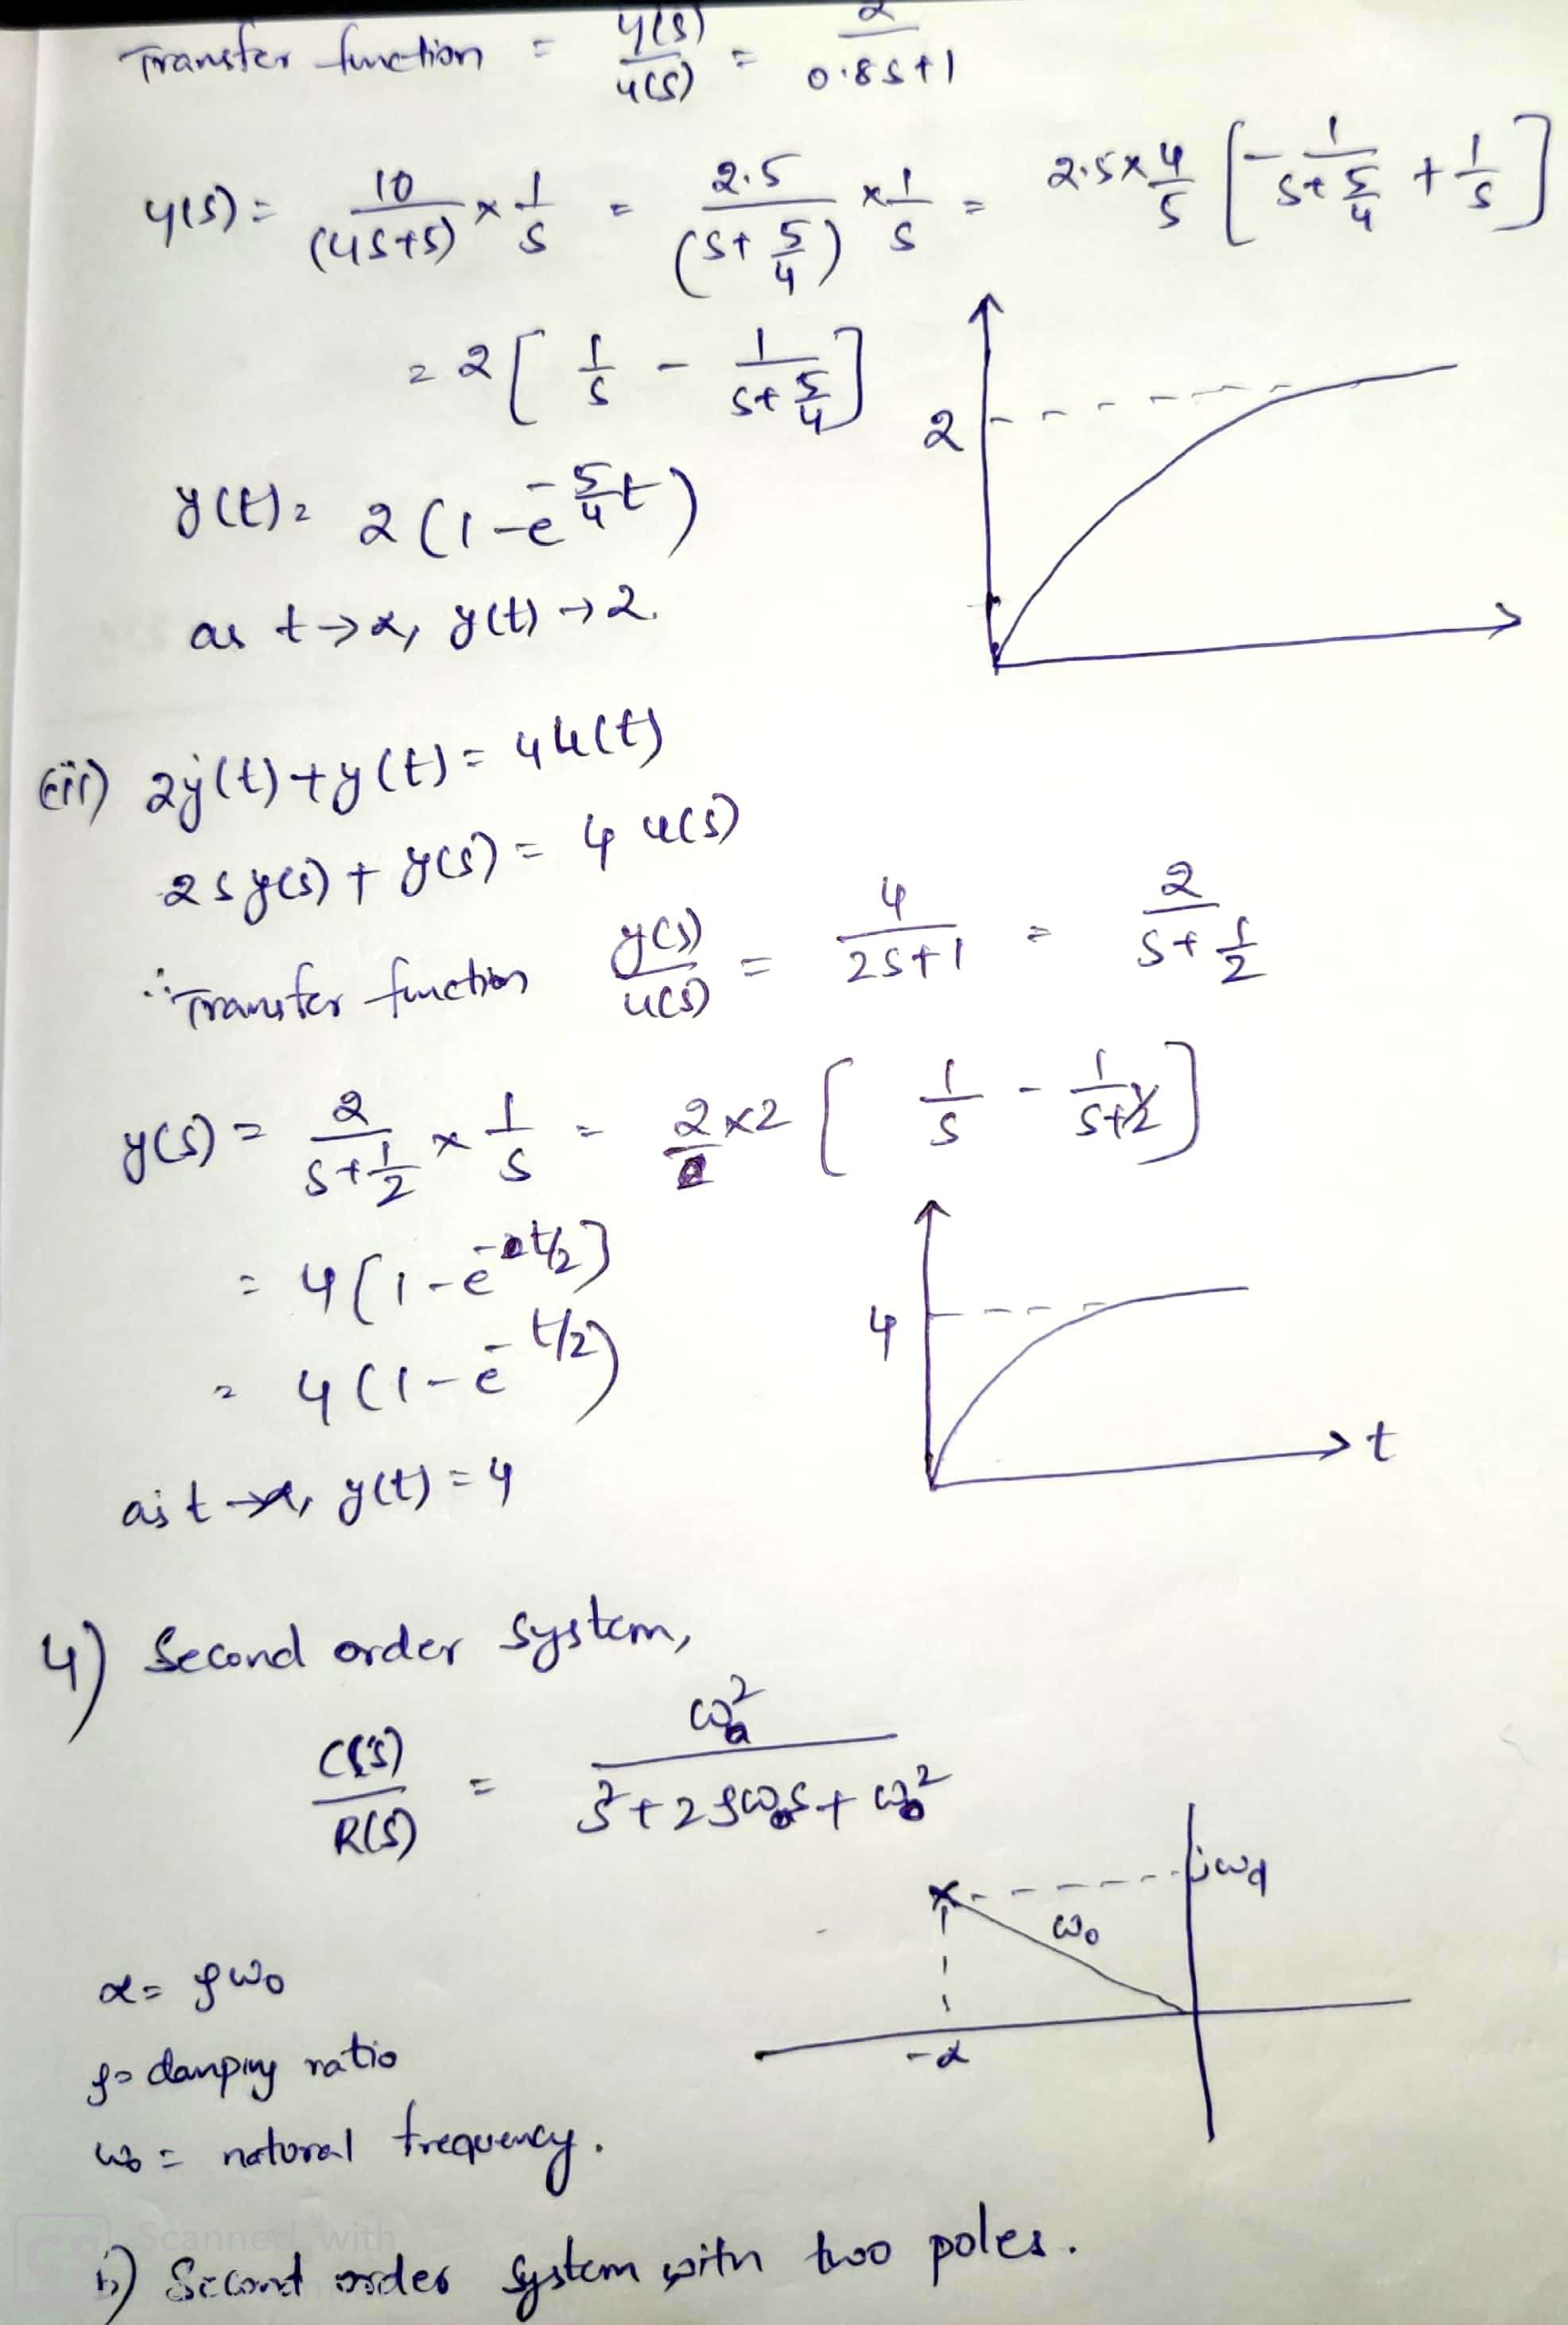 Transfer function = y(s)/u(s) = 2/0.8s+1
y(s) = 10/(4s+5) × 1/s = 2.5/(s+5/4) × 1/s = 2.5×4/5 [-1/s+5/4 + 1/s]
= 2[1/s - 1/s+5/4]
2
y(t) = 2(1-e^-5/4t)
as t→∝, y(t)→2.
(iii) 2ẏ(t)+y(t) = 4u(t)
2sy(s) + y(s) = 4 u(s)
∴ Transfer function y(s)/u(s) = 4/2s+1 = 2/s+1/2
y(s) = 2/s+1/2 × 1/s = 2×2 [1/s - 1/s+1/2]
= 4[1-e^-t/2]
= 4(1-e^-t/2)
4
t
as t→∝, y(t)=4
4) Second order system,
C(s)/R(s) = ω0²/s²+2ζω0s+ω0²
jωd
ω0
-α
α = ζω0
ζ = damping ratio
ω0 = natural frequency.
b) Second order system with two poles.
Scanned with